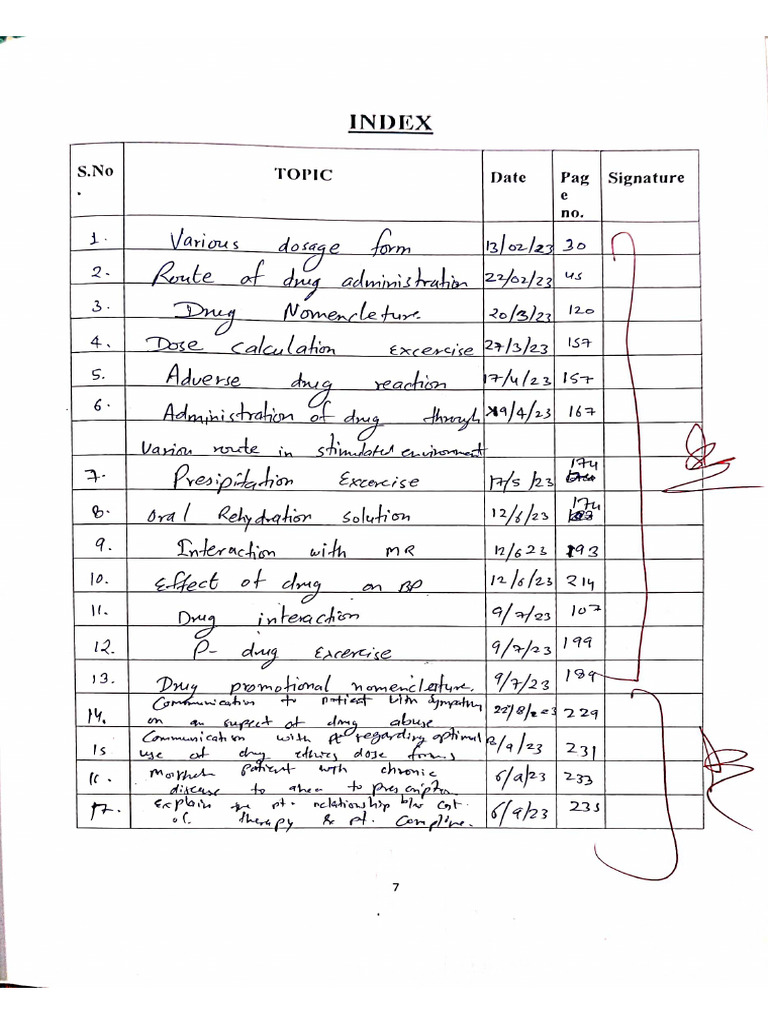 INDEX
S.No . TOPIC Date Pag e no. Signature
1. Various dosage form 13/02/23 30
2. Route of drug administration 22/02/23 45
3. Drug Nomencleture. 20/3/23 120
4. Dose calculation excercise 27/3/23 157
5. Adverse drug reaction 17/4/23 157
6. Administration of drug through 19/4/23 167
Variou route in stimulated environment
7. Presipitation Excercise 17/5/23 174
8. Oral Rehydration solution 12/6/23 174
9. Interaction with MR 12/623 193
10. Effect of drug on BP 12/6/23 214
11. Drug interaction 9/7/23 107
12. P- drug Excercise 9/7/23 199
13. Drug promotional nomencleture. 9/7/23 189
Communication to patient with sympathy
14. on an supect of drug abuse 22/8/23 229
Communication with pt regarding optimal
15 use of drug dose forms 2/9/23 231
16. patient with chronic 6/9/23 233
disease to to prescription
17. Explain the pt. relationship b/w cost 6/9/23 235
of. therapy & pt. Compline.
7